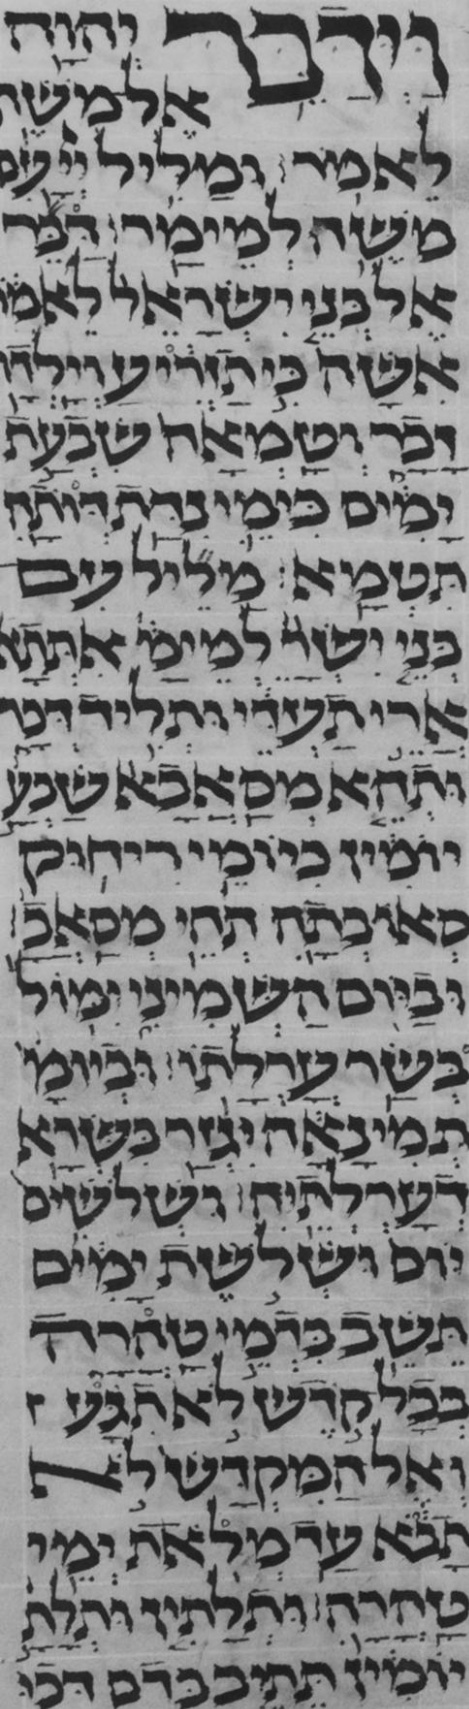 וידבר יהוה
אל משה
לאמר׃ ומליל ייי עם
משה למימר׃ דבר
אל בני ישראל לאמר
אשה כי תזריע וילדה
זכר וטמאה שבעת
ימים כימי נדת דותה
תטמא׃ מליל עם
בני ישר למימ אתתא
ארי תעדי ותליד דכר
ותהא מסאבא שבע
יומין כיומי ריחוק
סאובתה תהי מסאב׃
וביום השמיני ימול
בשר ערלתו׃ וביומ
תמינאה יגזר בשרא
דערלתיה׃ ושלשים
יום ושלשת ימים
תשב בדמי טהרה
בכל קדש לא תגע
ואל המקדש לא
תבא עד מלאת ימי
טהרה׃ ותלתין ותלת
יומין תתיב בדם דכו